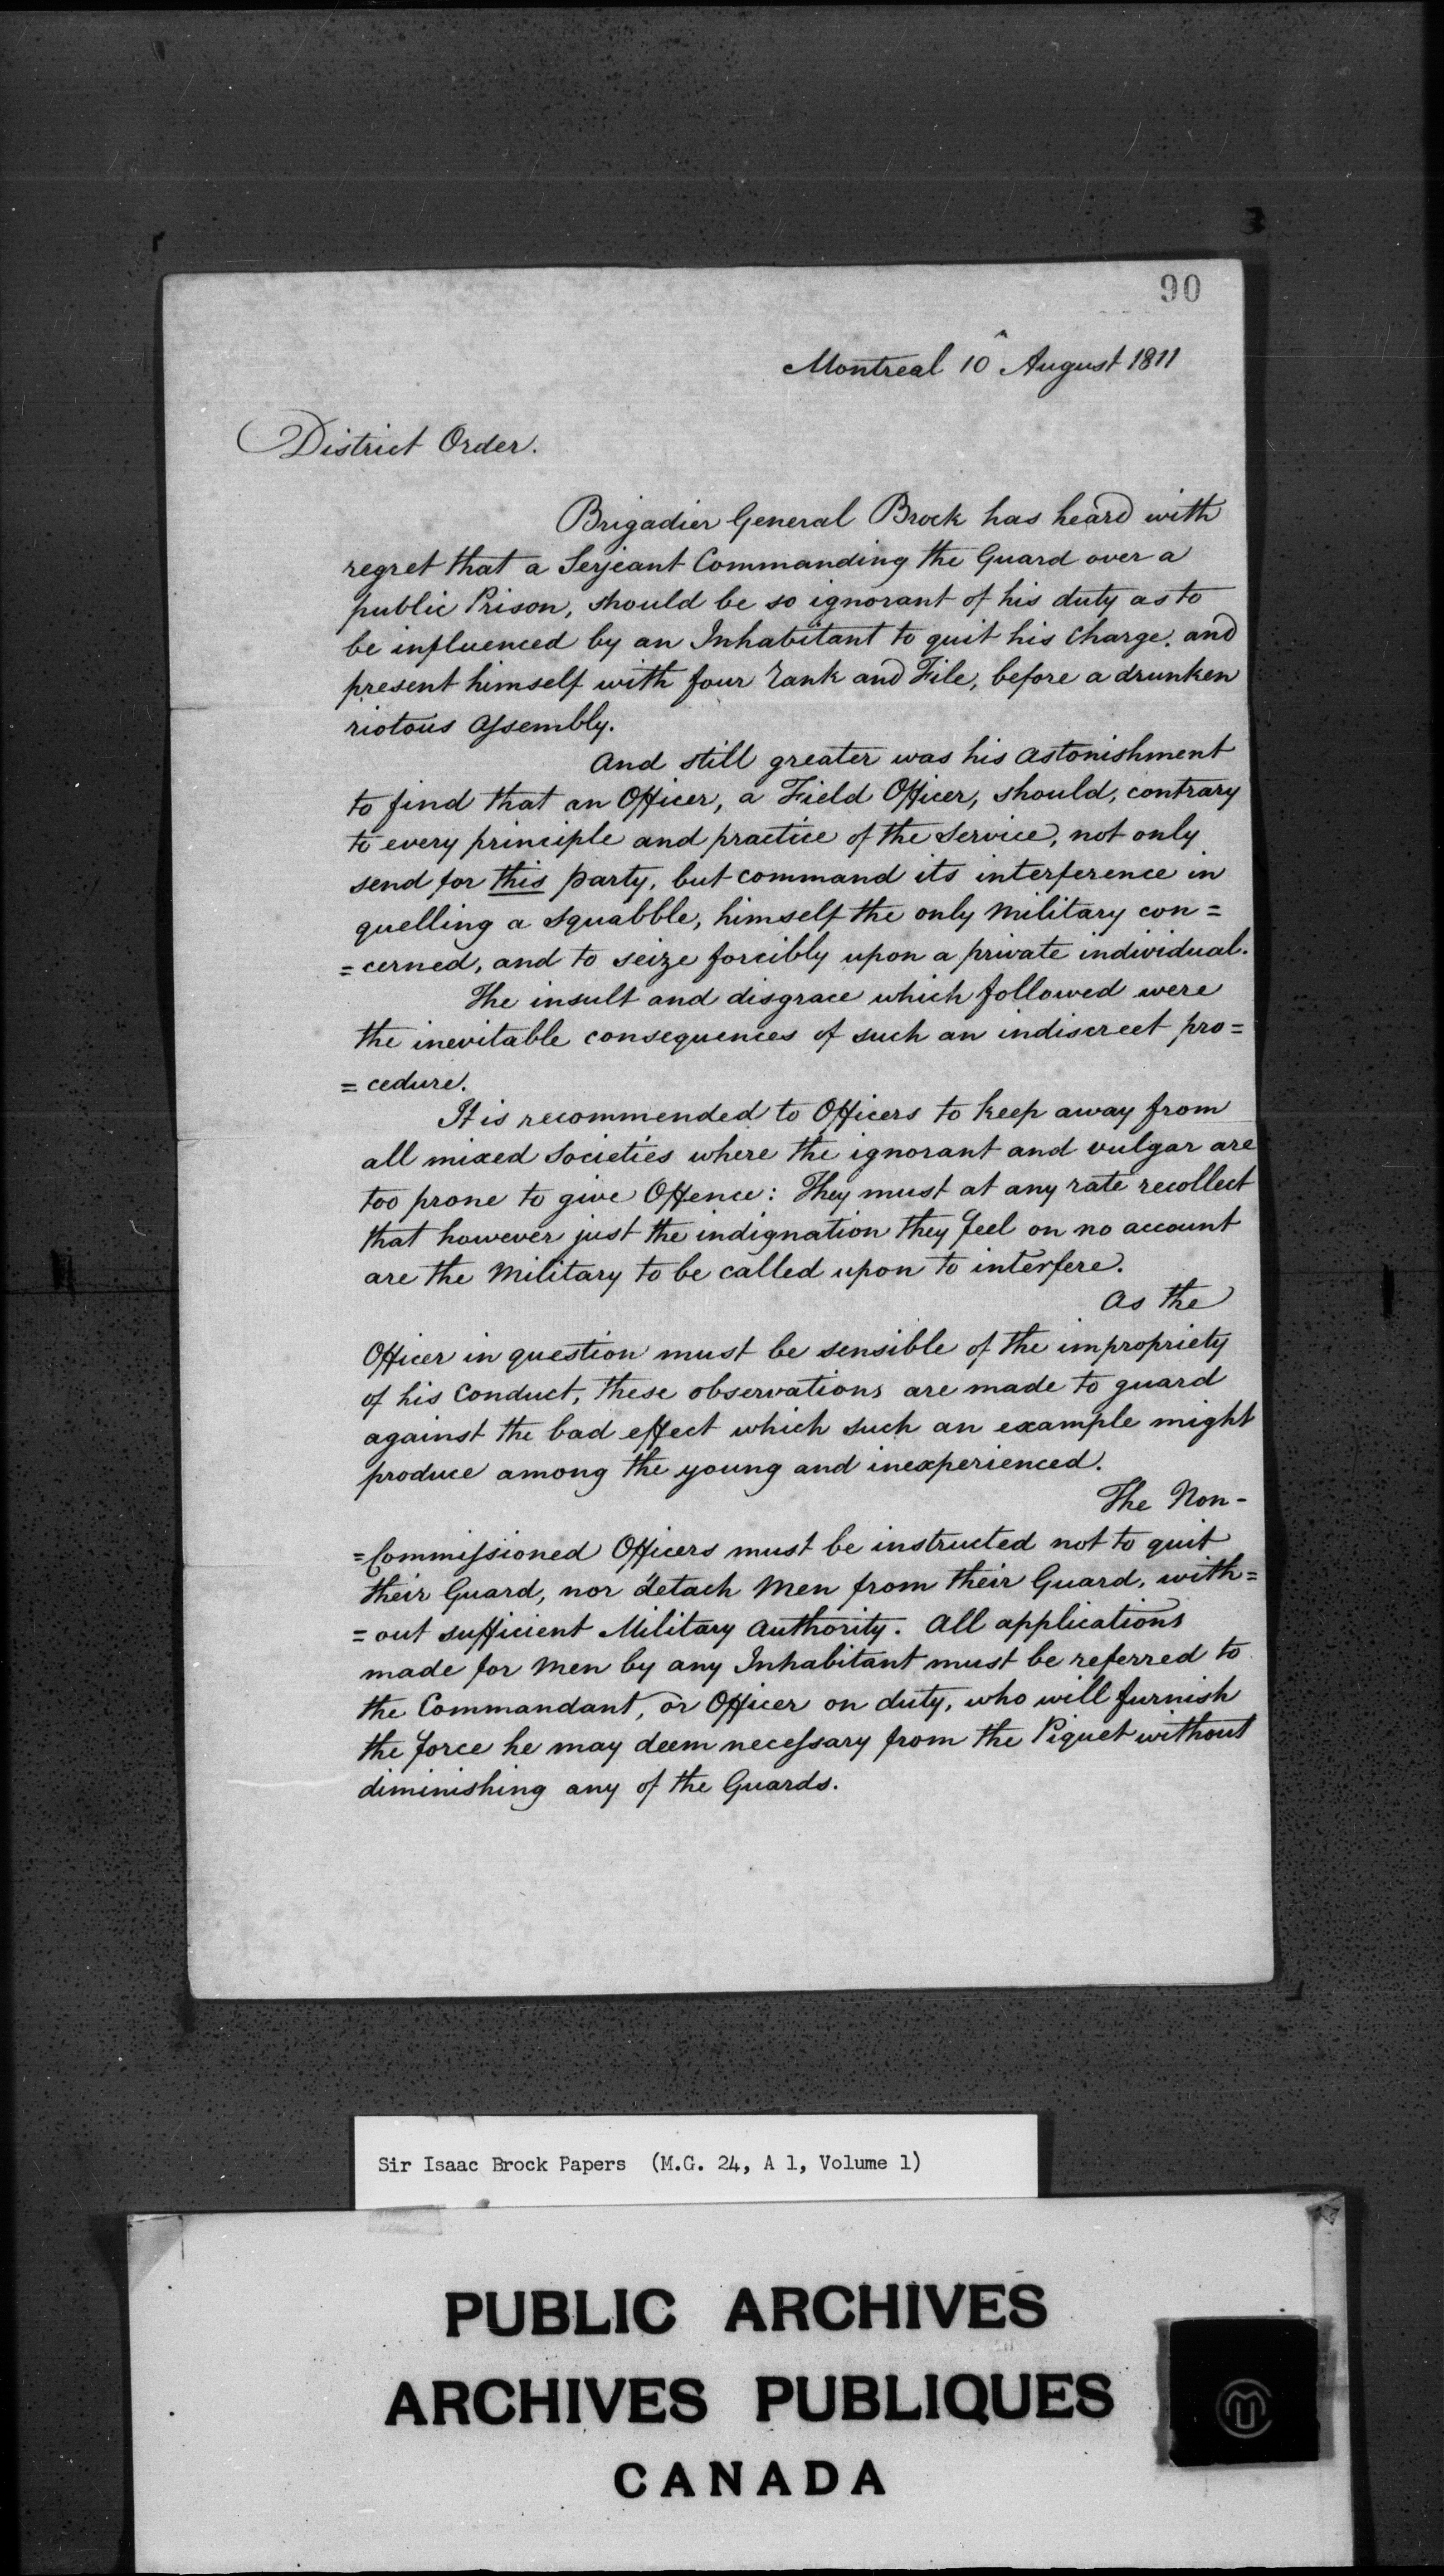 90
Montreal 10 August 1811
District Order.
Brigadier General Brock has heard with
regret that a Serjeant Commanding the Guard over a
public Prison, should be so ignorant of his duty as to
be influenced by an Inhabitant to quit his Charge, and
present himself with four Rank and File, before a drunken
riotous Assembly.
And still greater was his Astonishment
to find that an Officer, a Field Officer, should, contrary
to every principle and practice of the Service, not only
send for this party, but command its interference in
quelling a Squabble, himself the only Military con=
=cerned, and to seize forcibly upon a private individual.
The insult and disgrace which followed were
the inevitable consequences of such an indiscreet pro=
=cedure.
It is recommended to Officers to keep away from
all mixed Societies where the ignorant and vulgar are
too prone to give Offence: They must at any rate recollect
that however just the indignation they feel on no account
are the Military to be called upon to interfere.
As the
Officer in question must be sensible of the impropriety
of his Conduct, these observations are made to guard
against the bad effect which such an example might
produce among the young and inexperienced.
The Non-
=Commissioned Officers must be instructed not to quit
their Guard, nor detach Men from their Guard, with=
=out sufficient Military Authority. All applications
made for Men by any Inhabitant must be referred to
the Commandant, or Officer on duty, who will furnish
the force he may deem necessary from the Piquet without
diminishing any of the Guards.
Sir Isaac Brock Papers (M.G. 24, A 1, Volume 1)
PUBLIC ARCHIVES
ARCHIVES PUBLIQUES
CANADA